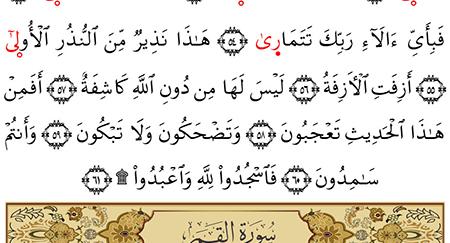 فَبِأَيِّ ءَالَآءِ رَبِّكَ تَتَمَارٜىٰ ۝٥٤ هَـٰذَا نَذِيرٌ مِّنَ ٱلنُّذُرِ ٱلْأُولٜىٰٓ
۝٥٥ أَزِفَتِ ٱلْأَزِفَةُ ۝٥٦ لَيْسَ لَهَا مِن دُونِ ٱللَّهِ كَاشِفَةٌ ۝٥٧ أَفَمِنْ
هَـٰذَا ٱلْحَدِيثِ تَعْجَبُونَ ۝٥٨ وَتَضْحَكُونَ وَلَا تَبْكُونَ ۝٥٩ وَأَنتُمْ
سَـٰمِدُونَ ۝٦٠ فَٱسْجُدُواْ لِلَّهِ وَٱعْبُدُواْ ۩ ۝٦١
سُورَةُ القَمَر